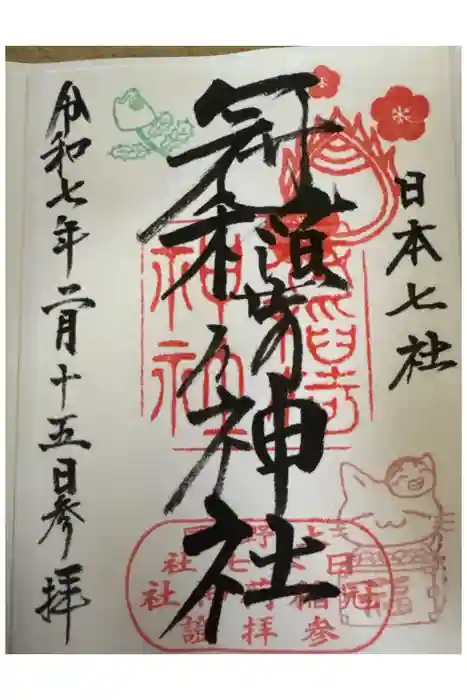 日本七社
冠稲荷神社
令和七年二月十五日参拝
神社
日本七社
冠稲荷神社
参拝證
福